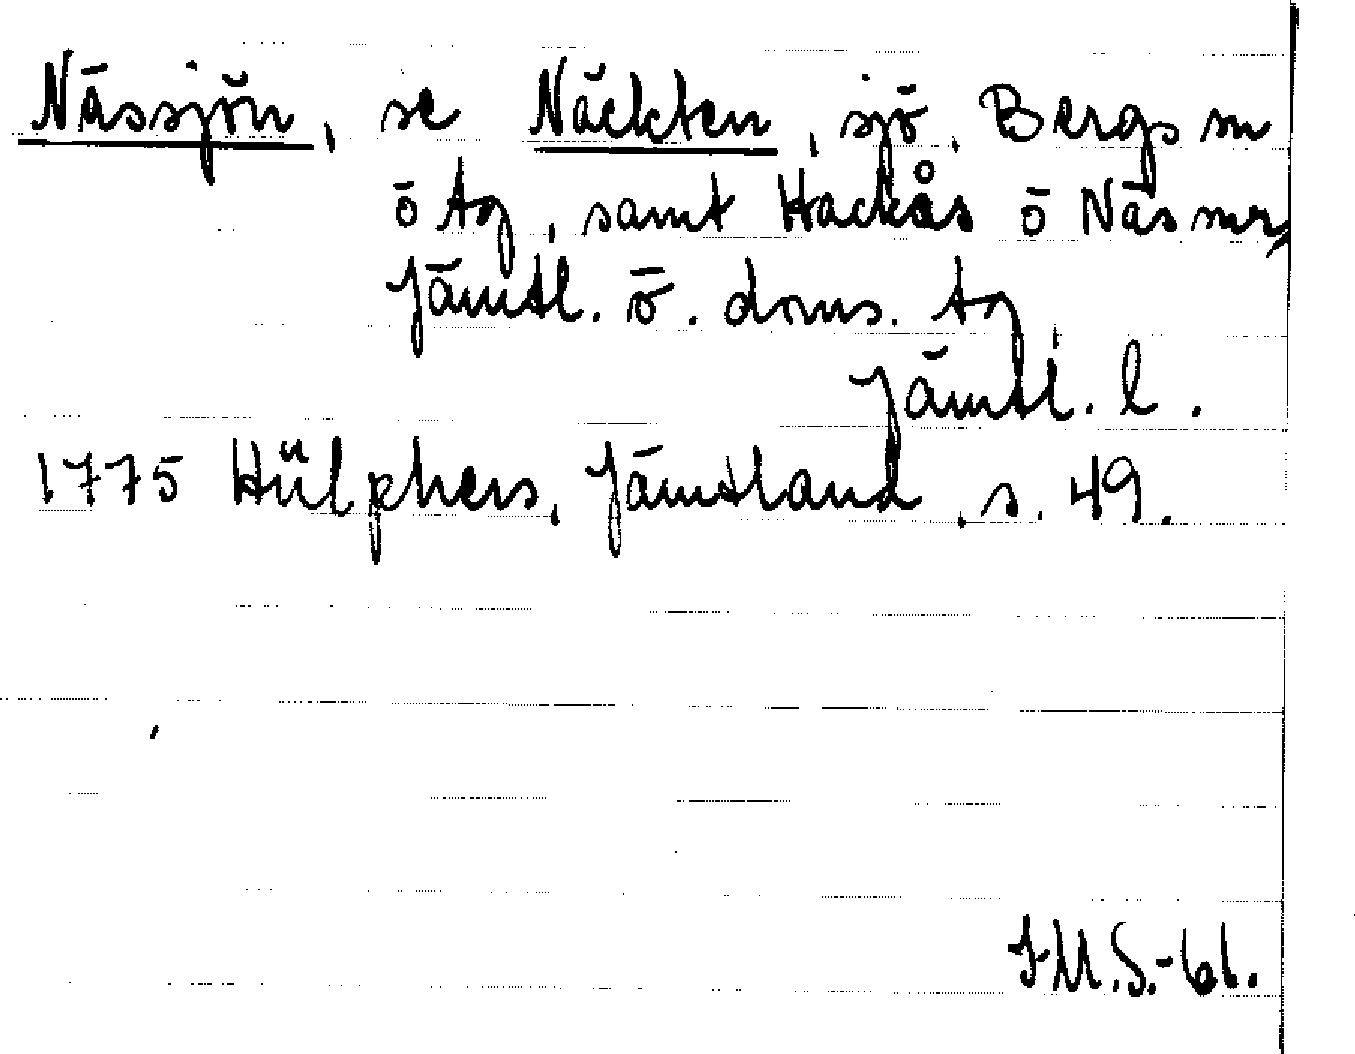 Nässjön, se Näckten, sjö, Bergs sn
o tg, samt Hackås o Näs snr,
Jämtl. ö. doms. tg
Jämtl. l.
1775 Hülphers, Jämtland, s. 49.
I M.S.-61.